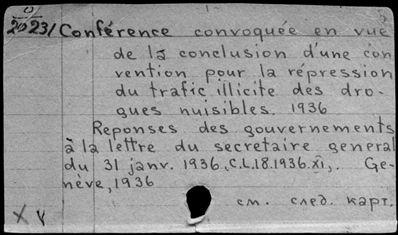 O
2023/ Conférence convoquée en vue
de la conclusion d'une con
vention pour la répression
du trafic illicite des dro-
gues nuisibles. 1936
Reponses des gouvernements
à la lettre du secretaire general
du 31 janv. 1936, C.L.18.1936.XI,. Ge-
nève, 1936
см. след. карт.
X V